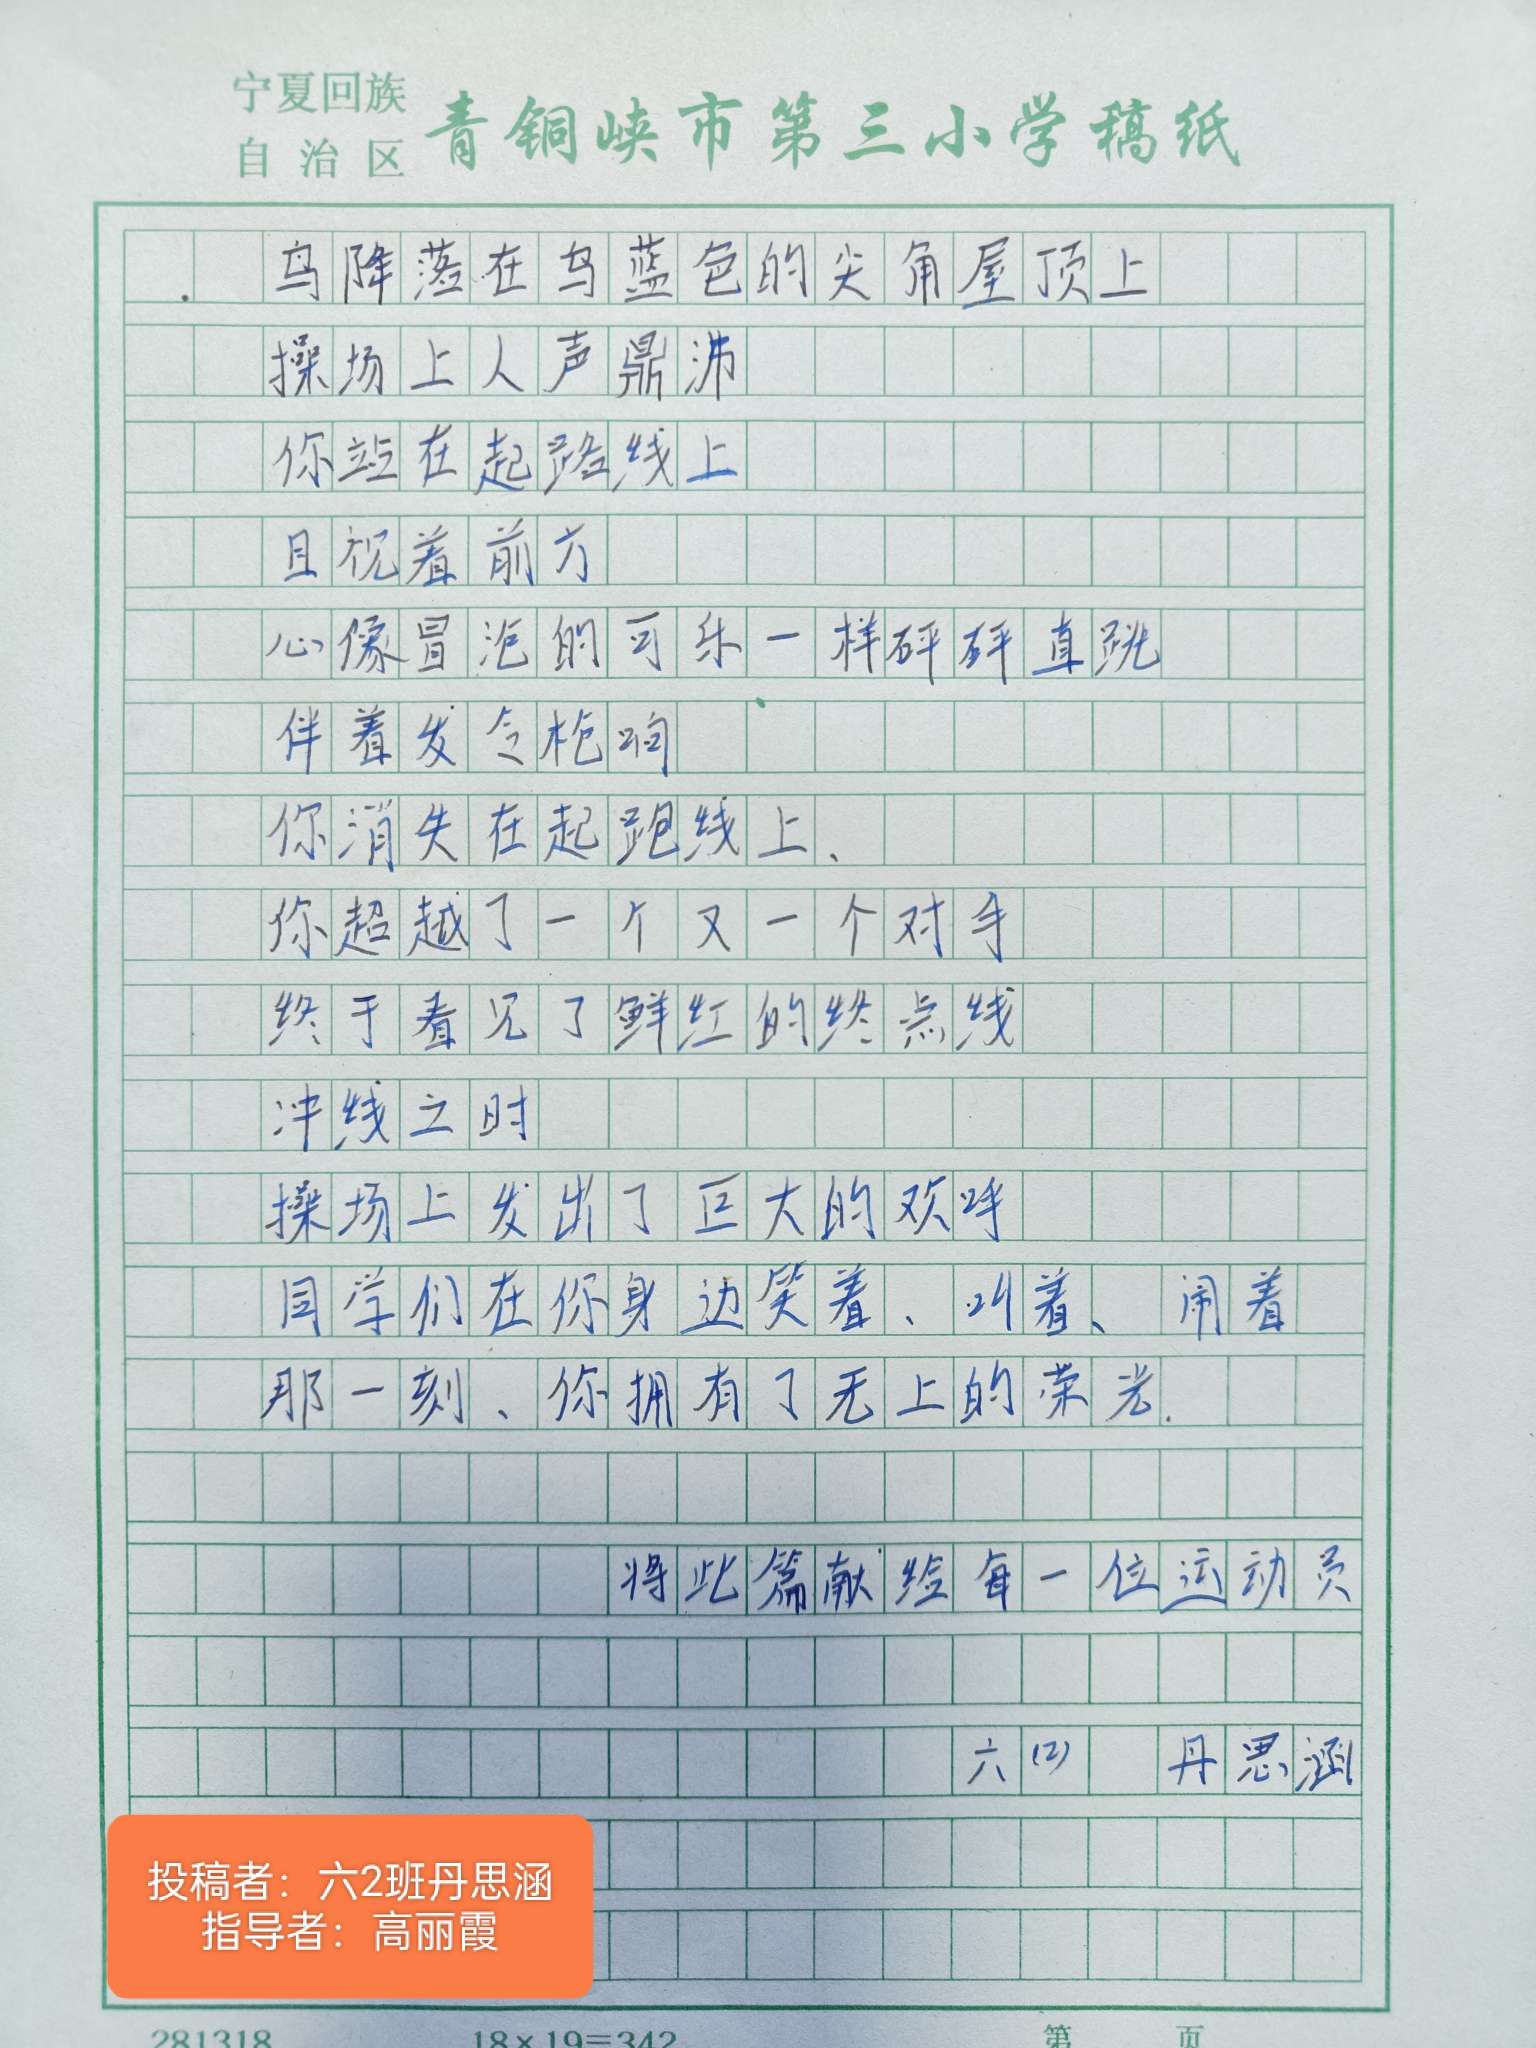 宁夏回族
自治区
青铜峡市第三小学稿纸
鸟降落在鸟蓝色的尖角屋顶上
操场上人声鼎沸
你站在起路线上
目视着前方
心像冒泡的可乐一样砰砰直跳
伴着发令枪响
你消失在起跑线上、
你超越了一个又一个对手
终于看见了鲜红的终点线
冲线之时
操场上发出了巨大的欢呼
同学们在你身边笑着、叫着、闹着
那一刻、你拥有了无上的荣光.
将此篇献给每一位运动员
六(2) 丹思涵
投稿者：六2班丹思涵
指导者：高丽霞
281318 18×19=342 第 页